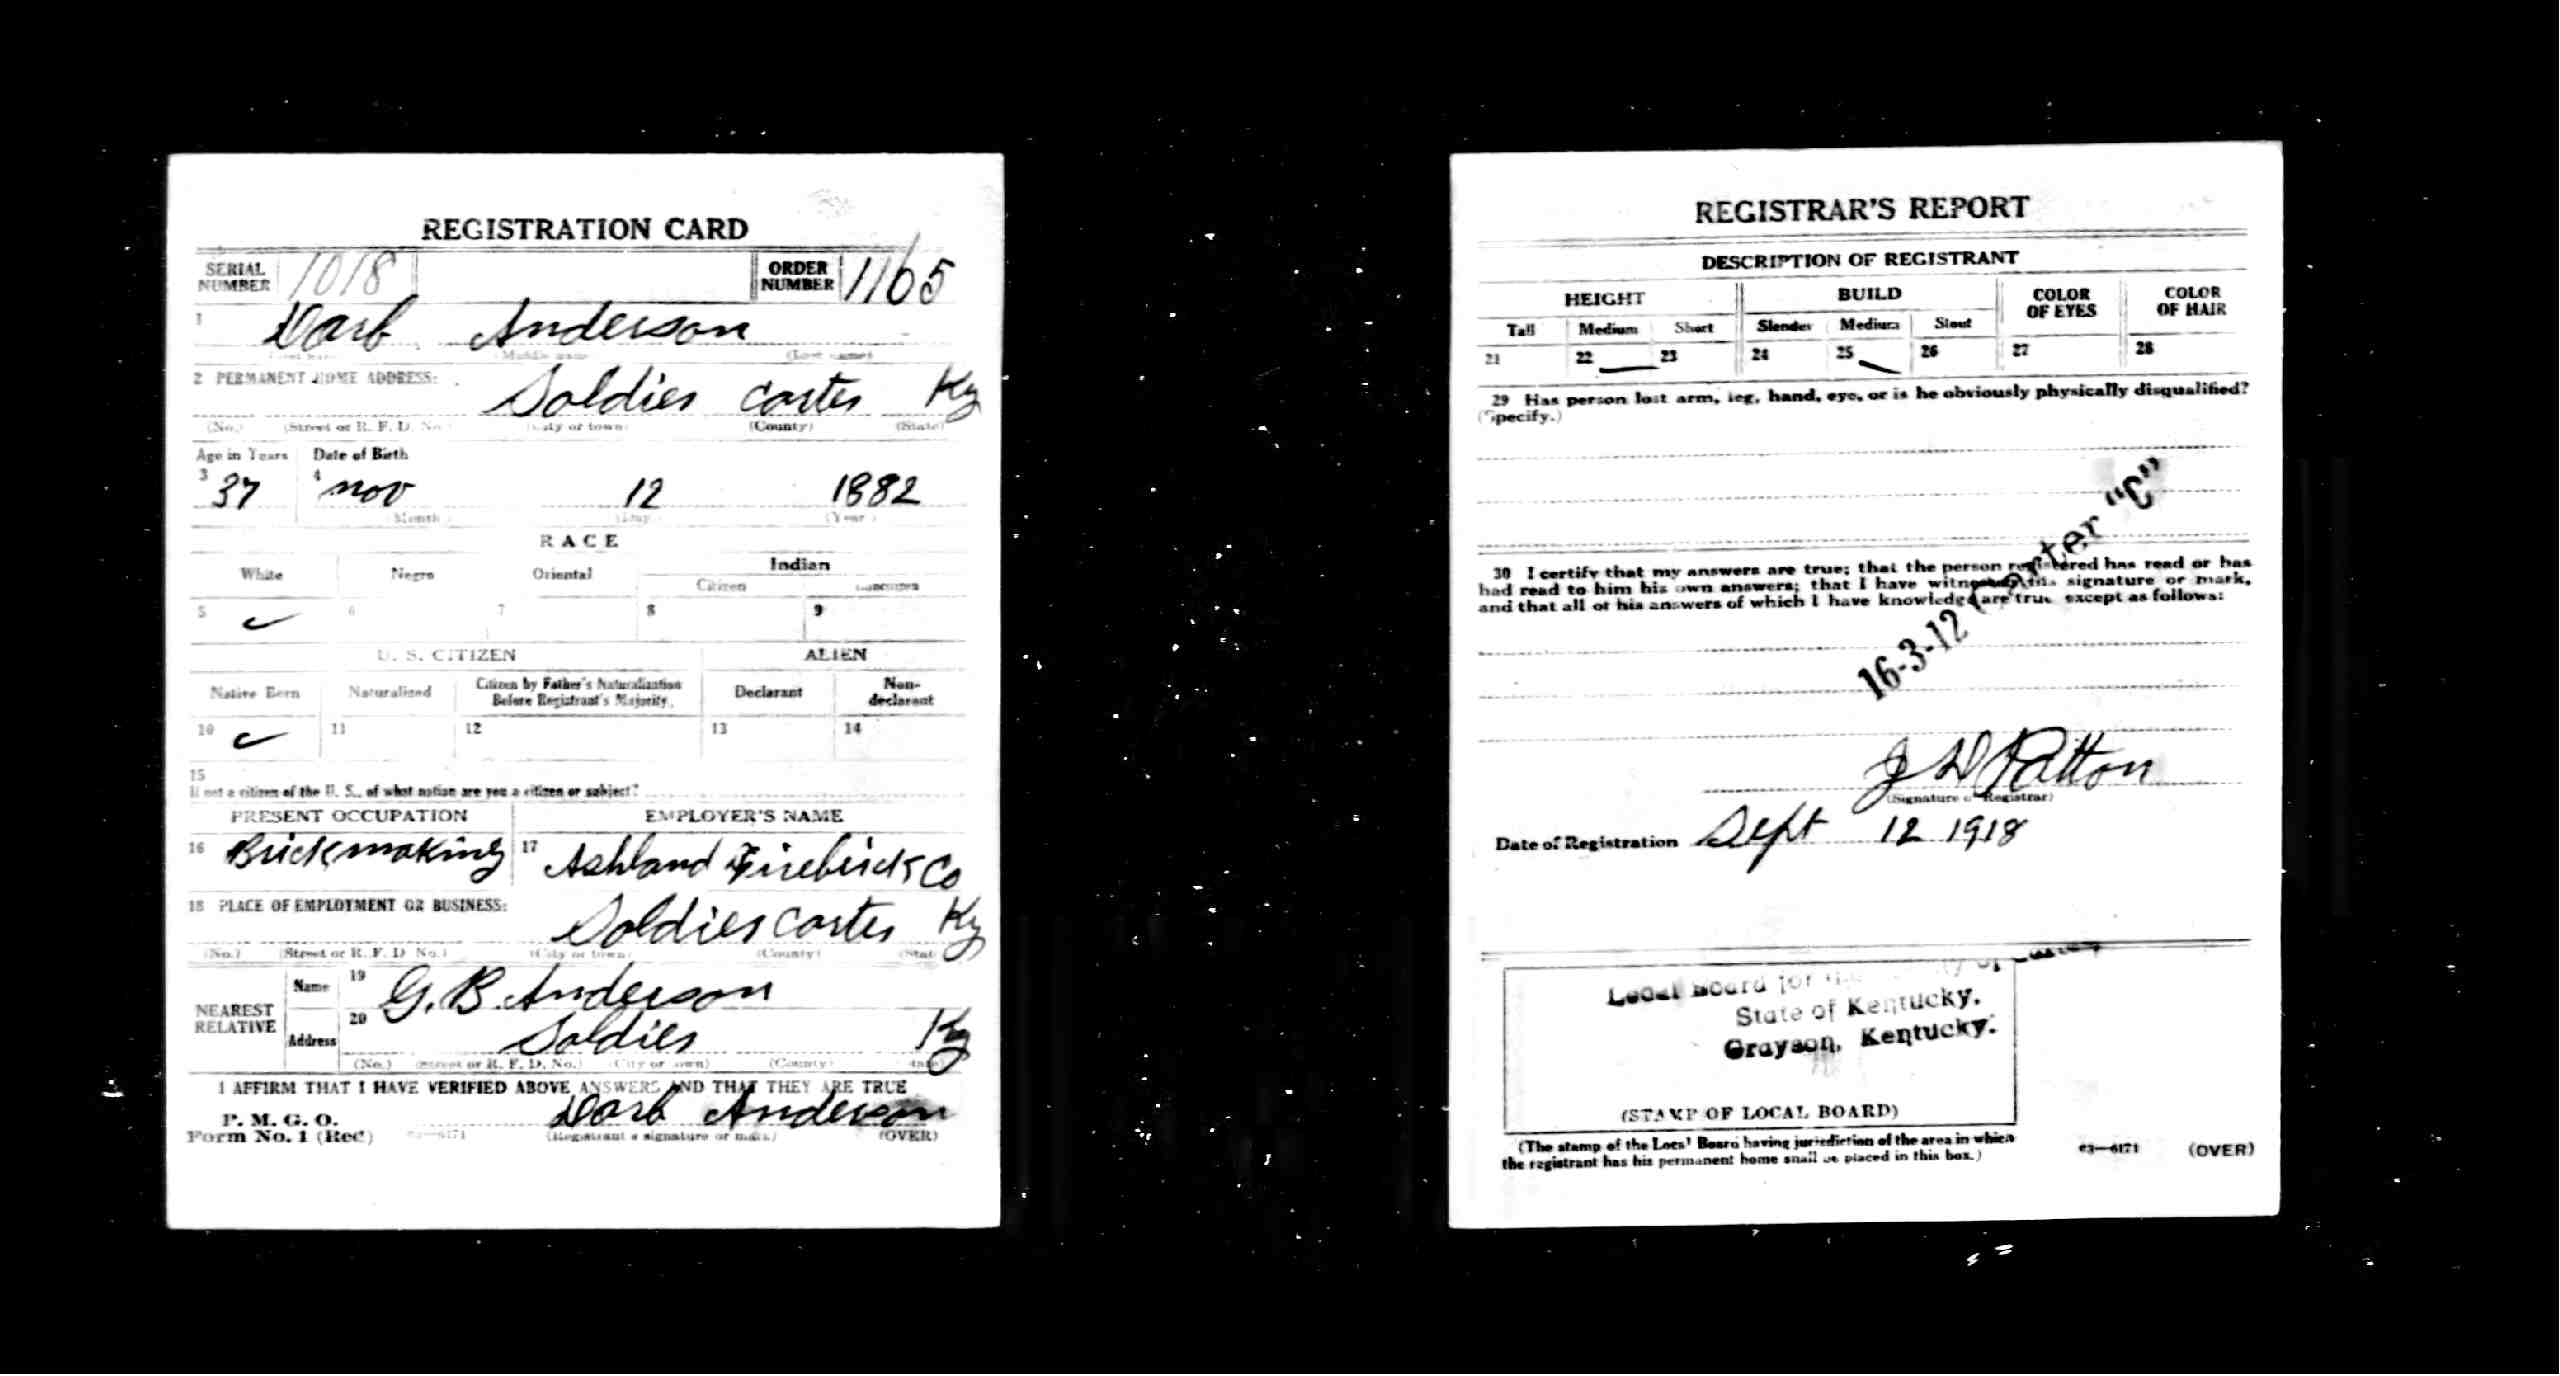 REGISTRATION CARD
SERIAL NUMBER 1018 ORDER NUMBER 1165
1 Darb Anderson
(Middle name) (Last name)
2 PERMANENT HOME ADDRESS:
Soldier Carter Ky
(No.) (Street or R. F. D. No.) (City or town) (County) (State)
Age in Years Date of Birth
3 37 4 Nov 12 1882
(Month) (Day) (Year)
RACE
White Negro Oriental Indian
Citizen
5 ✓ 6 7 8 9
U. S. CITIZEN ALIEN
Native Born Naturalized Citizen by Father's Naturalization Before Registrant's Majority Declarant Non-declarant
10 ✓ 11 12 13 14
15
If not a citizen of the U. S., of what nation are you a citizen or subject?
PRESENT OCCUPATION EMPLOYER'S NAME
16 Brickmaking 17 Ashland Firebrick Co
18 PLACE OF EMPLOYMENT OR BUSINESS:
Soldier Carter Ky
(No.) (Street or R. F. D. No.) (City or town) (County) (State)
NEAREST RELATIVE
Name 19 G. B. Anderson
Address 20 Soldier Ky
(No.) (Street or R. F. D. No.) (City or town) (County) (State)
I AFFIRM THAT I HAVE VERIFIED ABOVE ANSWERS AND THAT THEY ARE TRUE
P. M. G. O.
Form No. 1 (Red) Darb Anderson
(Registrant's signature or mark) (OVER)
REGISTRAR'S REPORT
DESCRIPTION OF REGISTRANT
HEIGHT BUILD COLOR OF EYES COLOR OF HAIR
Tall Medium Short Slender Medium Stout
21 22 23 24 25 26 27 28
29 Has person lost arm, leg, hand, eye, or is he obviously physically disqualified?
(Specify.)
30 I certify that my answers are true; that the person registered has read or has
had read to him his own answers; that I have witnessed his signature or mark,
and that all of his answers of which I have knowledge are true, except as follows:
16-3-12 Carter "C"
J D Patton
(Signature of Registrar)
Date of Registration Sept 12 1918
Local Board for the County of Carter
State of Kentucky.
Grayson, Kentucky.
(STAMP OF LOCAL BOARD)
(The stamp of the Local Board having jurisdiction of the area in which
the registrant has his permanent home shall be placed in this box.)
03—6171 (OVER)